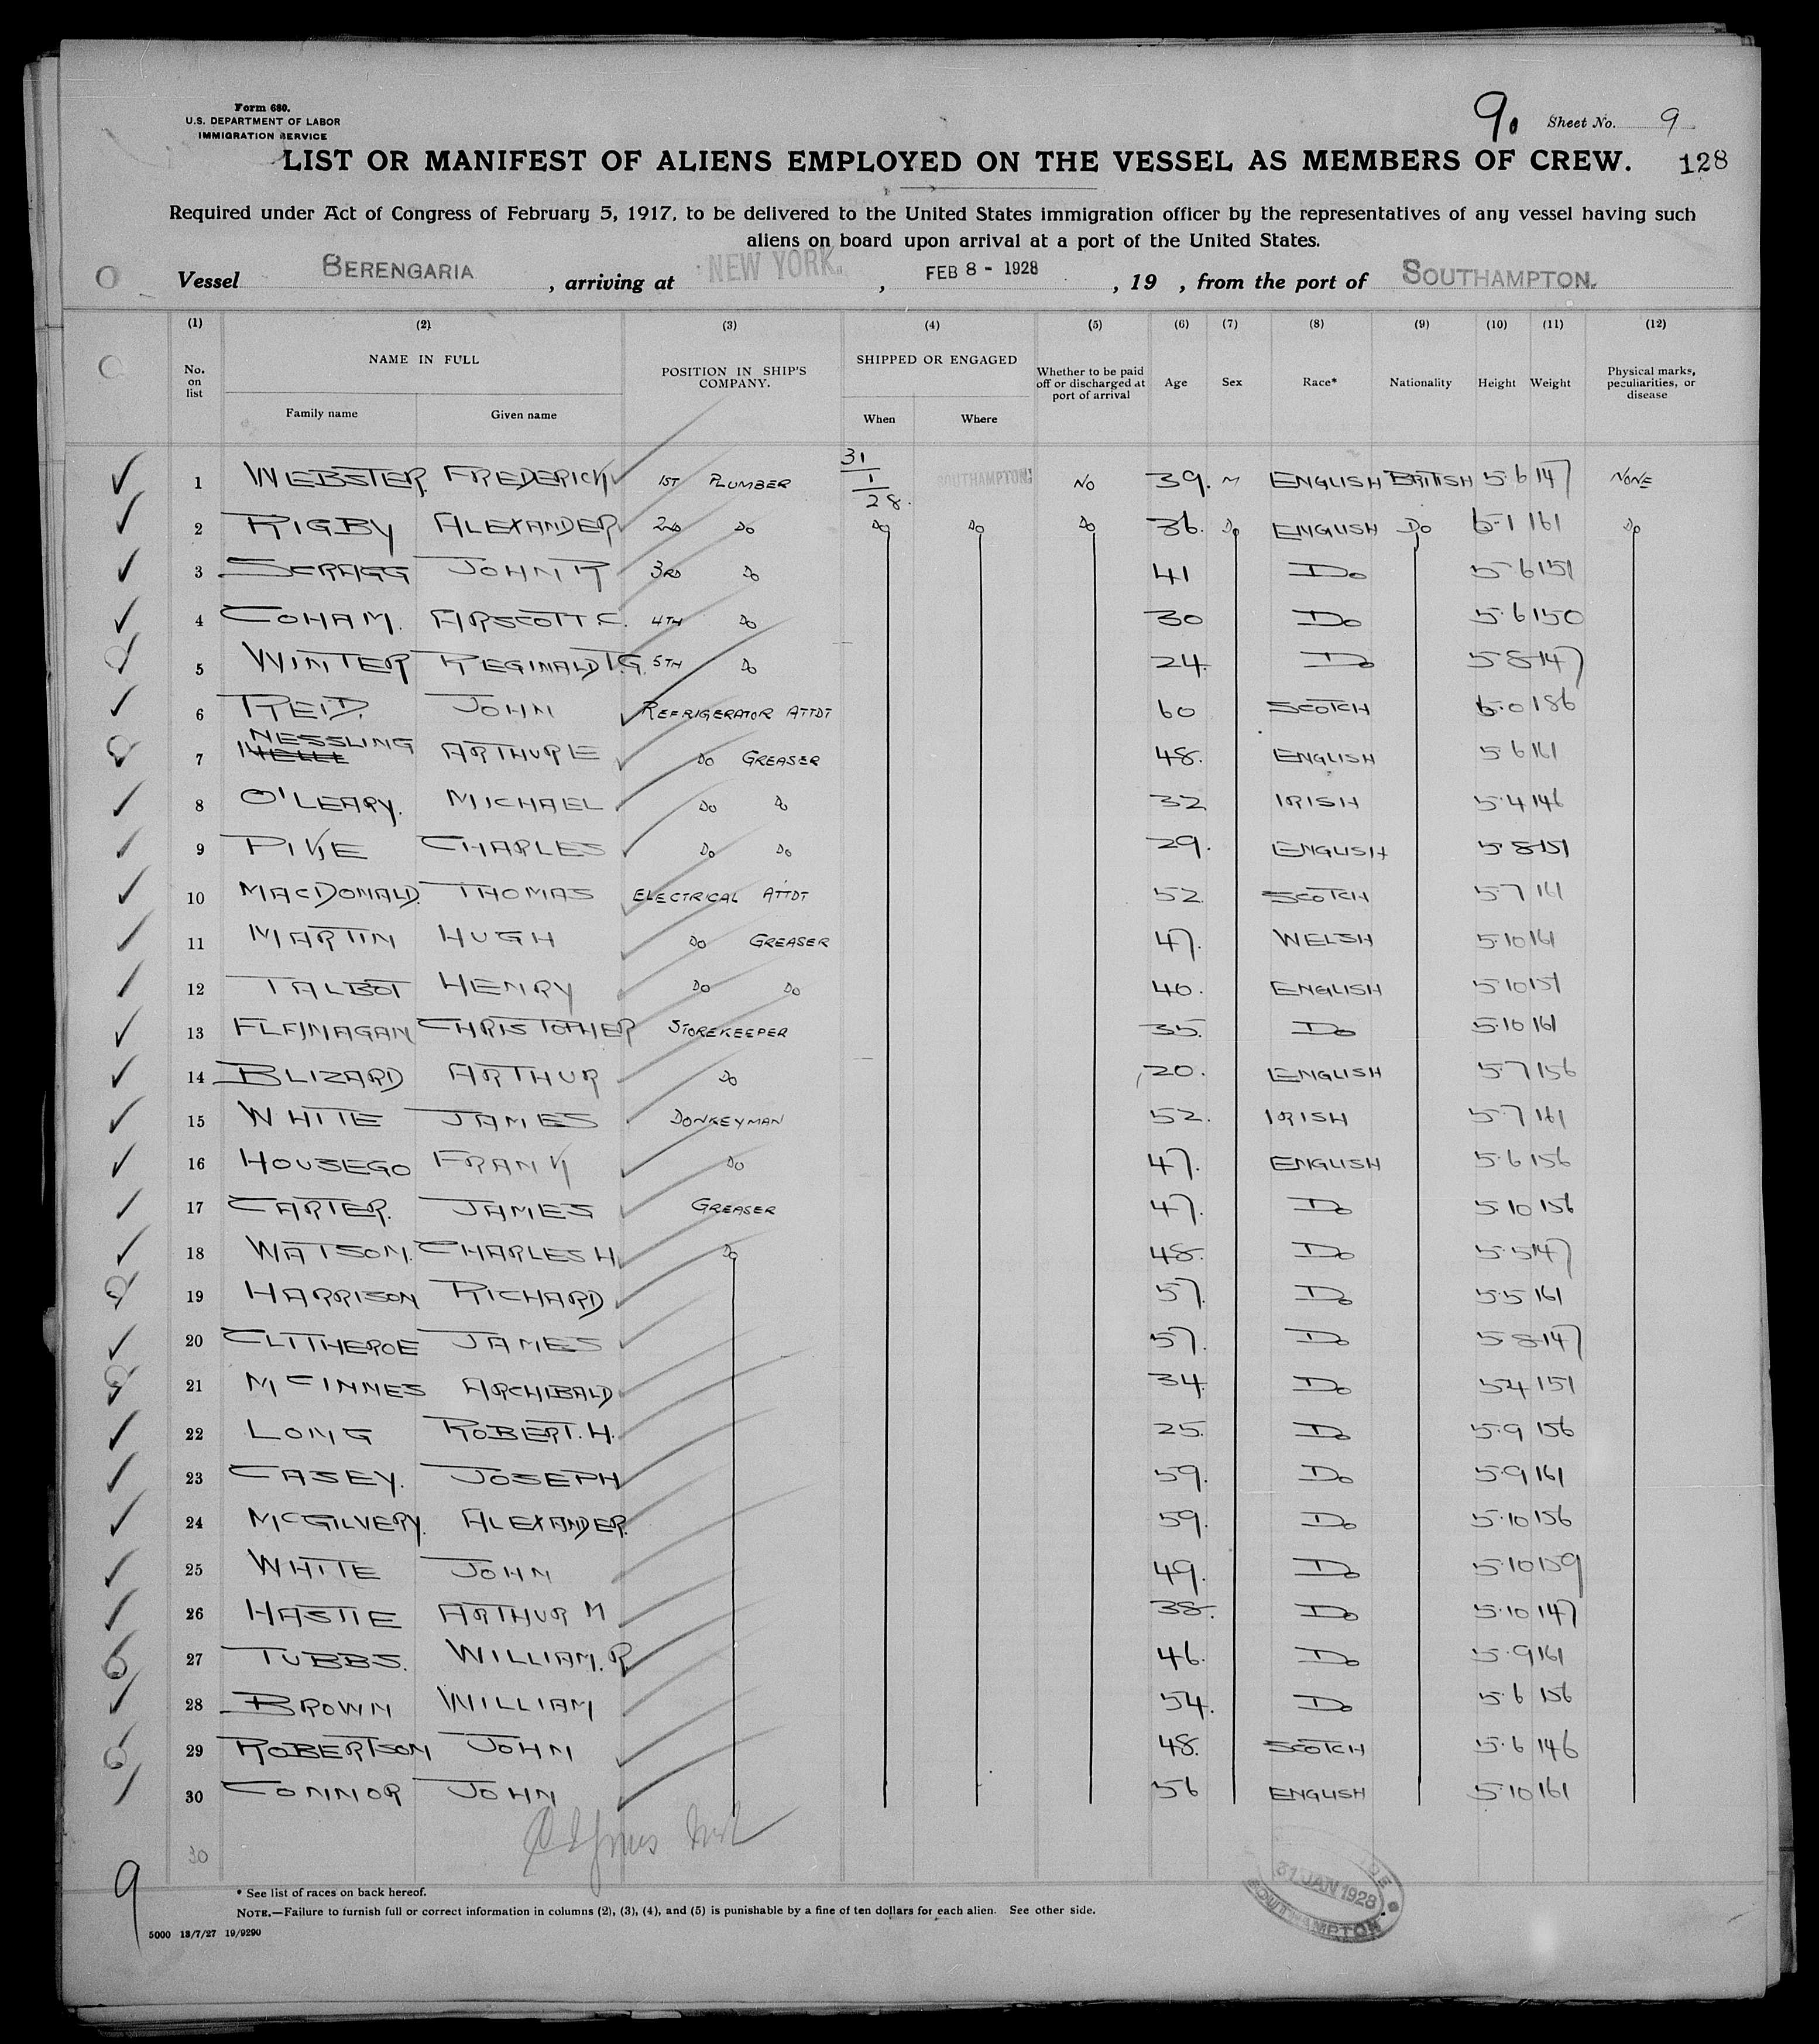 Form 680.
U.S. DEPARTMENT OF LABOR
IMMIGRATION SERVICE
9. Sheet No. 9
LIST OR MANIFEST OF ALIENS EMPLOYED ON THE VESSEL AS MEMBERS OF CREW. 128
Required under Act of Congress of February 5, 1917, to be delivered to the United States immigration officer by the representatives of any vessel having such
aliens on board upon arrival at a port of the United States.
Vessel BERENGARIA , arriving at NEW YORK. , FEB 8 - 1928 , 19 , from the port of SOUTHAMPTON.
(1) (2) (3) (4) (5) (6) (7) (8) (9) (10) (11) (12)
No. on list NAME IN FULL Family name Given name POSITION IN SHIP'S COMPANY. SHIPPED OR ENGAGED When Where Whether to be paid off or discharged at port of arrival Age Sex Race* Nationality Height Weight Physical marks, peculiarities, or disease
1 WEBSTER FREDERICK 1ST PLUMBER 31/1/28. SOUTHAMPTON NO 39. M ENGLISH BRITISH 5.6 147 NONE
2 RIGBY ALEXANDER 2ND DO DO DO DO 36. DO ENGLISH DO 6-1 161 DO
3 SCRAGG JOHN R 3RD DO 41 DO 5.6 151
4 COHAM. ARSCOTT C. 4TH DO 30 DO 5.6 150
5 WINTER REGINALD T.G. 5TH DO 24. DO 5.8 147
6 REID. JOHN REFRIGERATOR ATTDT 60 SCOTCH 6.0 186
7 NESSLING ARTHUR E DO GREASER 48. ENGLISH 5.6 161
8 O'LEARY. MICHAEL DO DO 32 IRISH 5.4 146
9 PIKE CHARLES DO DO 29. ENGLISH 5.8 151
10 MACDONALD. THOMAS ELECTRICAL ATTDT 52. SCOTCH 5.7 161
11 MARTIN HUGH DO GREASER 47. WELSH 5.10 161
12 TALBOT HENRY DO DO 40. ENGLISH 5.10 151
13 FLANAGAN CHRISTOPHER STOREKEEPER 35. DO 5.10 161
14 BLIZARD ARTHUR DO 20. ENGLISH 5.7 156
15 WHITE JAMES DONKEYMAN 52. IRISH 5.7 161
16 HOUSEGO FRANK DO 47. ENGLISH 5.6 156
17 CARTER. JAMES GREASER 47. DO 5.10 156
18 WATSON. CHARLES H. DO 48. DO 5.5 147
19 HARRISON RICHARD 57. DO 5.5 161
20 CLITHEROE JAMES 57. DO 5.8 147
21 MCINNES ARCHIBALD 34. DO 5.4 151
22 LONG ROBERT. H. 25. DO 5.9 156
23 CASEY. JOSEPH 59. DO 5.9 161
24 MCGILVERY. ALEXANDER. 59. DO 5.10 156
25 WHITE JOHN 49. DO 5.10 159
26 HASTIE ARTHUR M 38. DO 5.10 147
27 TUBBS. WILLIAM. R. 46. DO 5.9 161
28 BROWN WILLIAM 54. DO 5.6 156
29 ROBERTSON JOHN 48. SCOTCH 5.6 146
30 CONNOR JOHN 56 ENGLISH 5.10 161
30
31 JAN 1928
SOUTHAMPTON
9
* See list of races on back hereof.
NOTE.—Failure to furnish full or correct information in columns (2), (3), (4), and (5) is punishable by a fine of ten dollars for each alien. See other side.
5000 13/7/27 19/9290